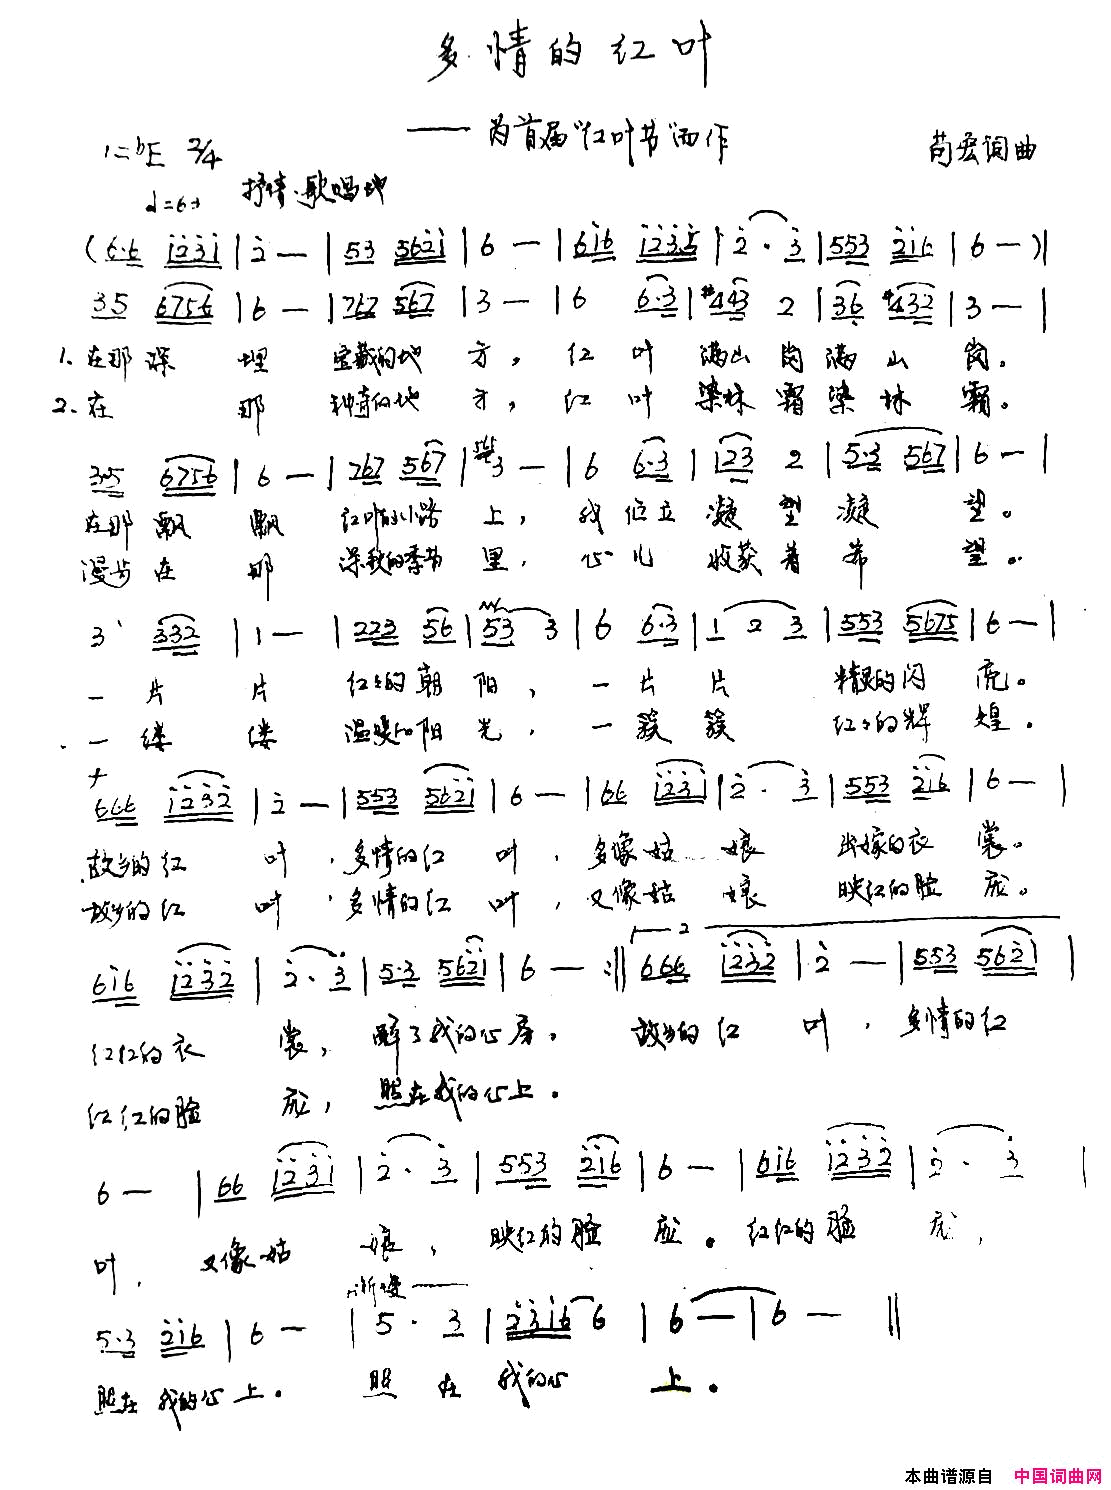 多情的红叶
——为首届"红叶节"而作
1=bE 2/4
苟宏词曲
抒情、歌唱地
(6·6 i2̇3̇i | 2̇ — | 53 562̇i | 6 — | 6i6 i2̇3̇5̇ | 2̇ · 3̇ | 553 2̇i6 | 6 — )|
35 6756 | 6 — | 767 567 | 3 — | 6 6·3 | #443 2 | 36 #432 | 3 — |
1. 在那深埋宝藏的地方，红叶满山岗满山岗。
2. 在那种奇的地方，红叶染林霜染林霜。
3·5 6756 | 6 — | 767 567 | 3 — | 6 6·3 | 123 2 | 5·3 567 | 6 — |
在那飘飘红叶的小路上，我伫立凝望凝望。
漫步在那深秋的季节里，心儿收获着希望。
3 332 | 1 — | 223 56 | 53 3 | 6 6·3 | 1 2 3 | 553 5675 | 6 — |
一片片红红的朝阳，一片片精灵的闪亮。
一缕缕温暖的阳光，一簇簇红红的辉煌。
666 i2̇3̇2̇ | 2̇ — | 553 562̇i | 6 — | 66 i2̇3̇i | 2̇ · 3̇ | 553 2̇i6 | 6 — |
故乡的红叶，多情的红叶，多像姑娘出嫁的衣裳。
故乡的红叶，多情的红叶，又像姑娘映红的脸庞。
6i6 i2̇3̇2̇ | 2̇ · 3̇ | 5·3 562̇i | 6 — :|| 2 666 i2̇3̇2̇ | 2̇ — | 553 562̇i |
红红的衣裳，醉了我的心房。故乡的红叶，多情的红
红红的脸庞，照在我的心上。
6 — | 66 i2̇3̇i | 2̇ · 3̇ | 553 2̇i6 | 6 — | 6i6 i2̇3̇2̇ | 2̇ · 3̇ |
叶，又像姑娘，映红的脸庞。红红的脸庞，
渐慢——
5·3 2̇i6 | 6 — | 5 · 3 | 2̇3̇i6 6 | 6 — | 6 — ||
照在我的心上。照在我的心上。
本曲谱源自 中国词曲网